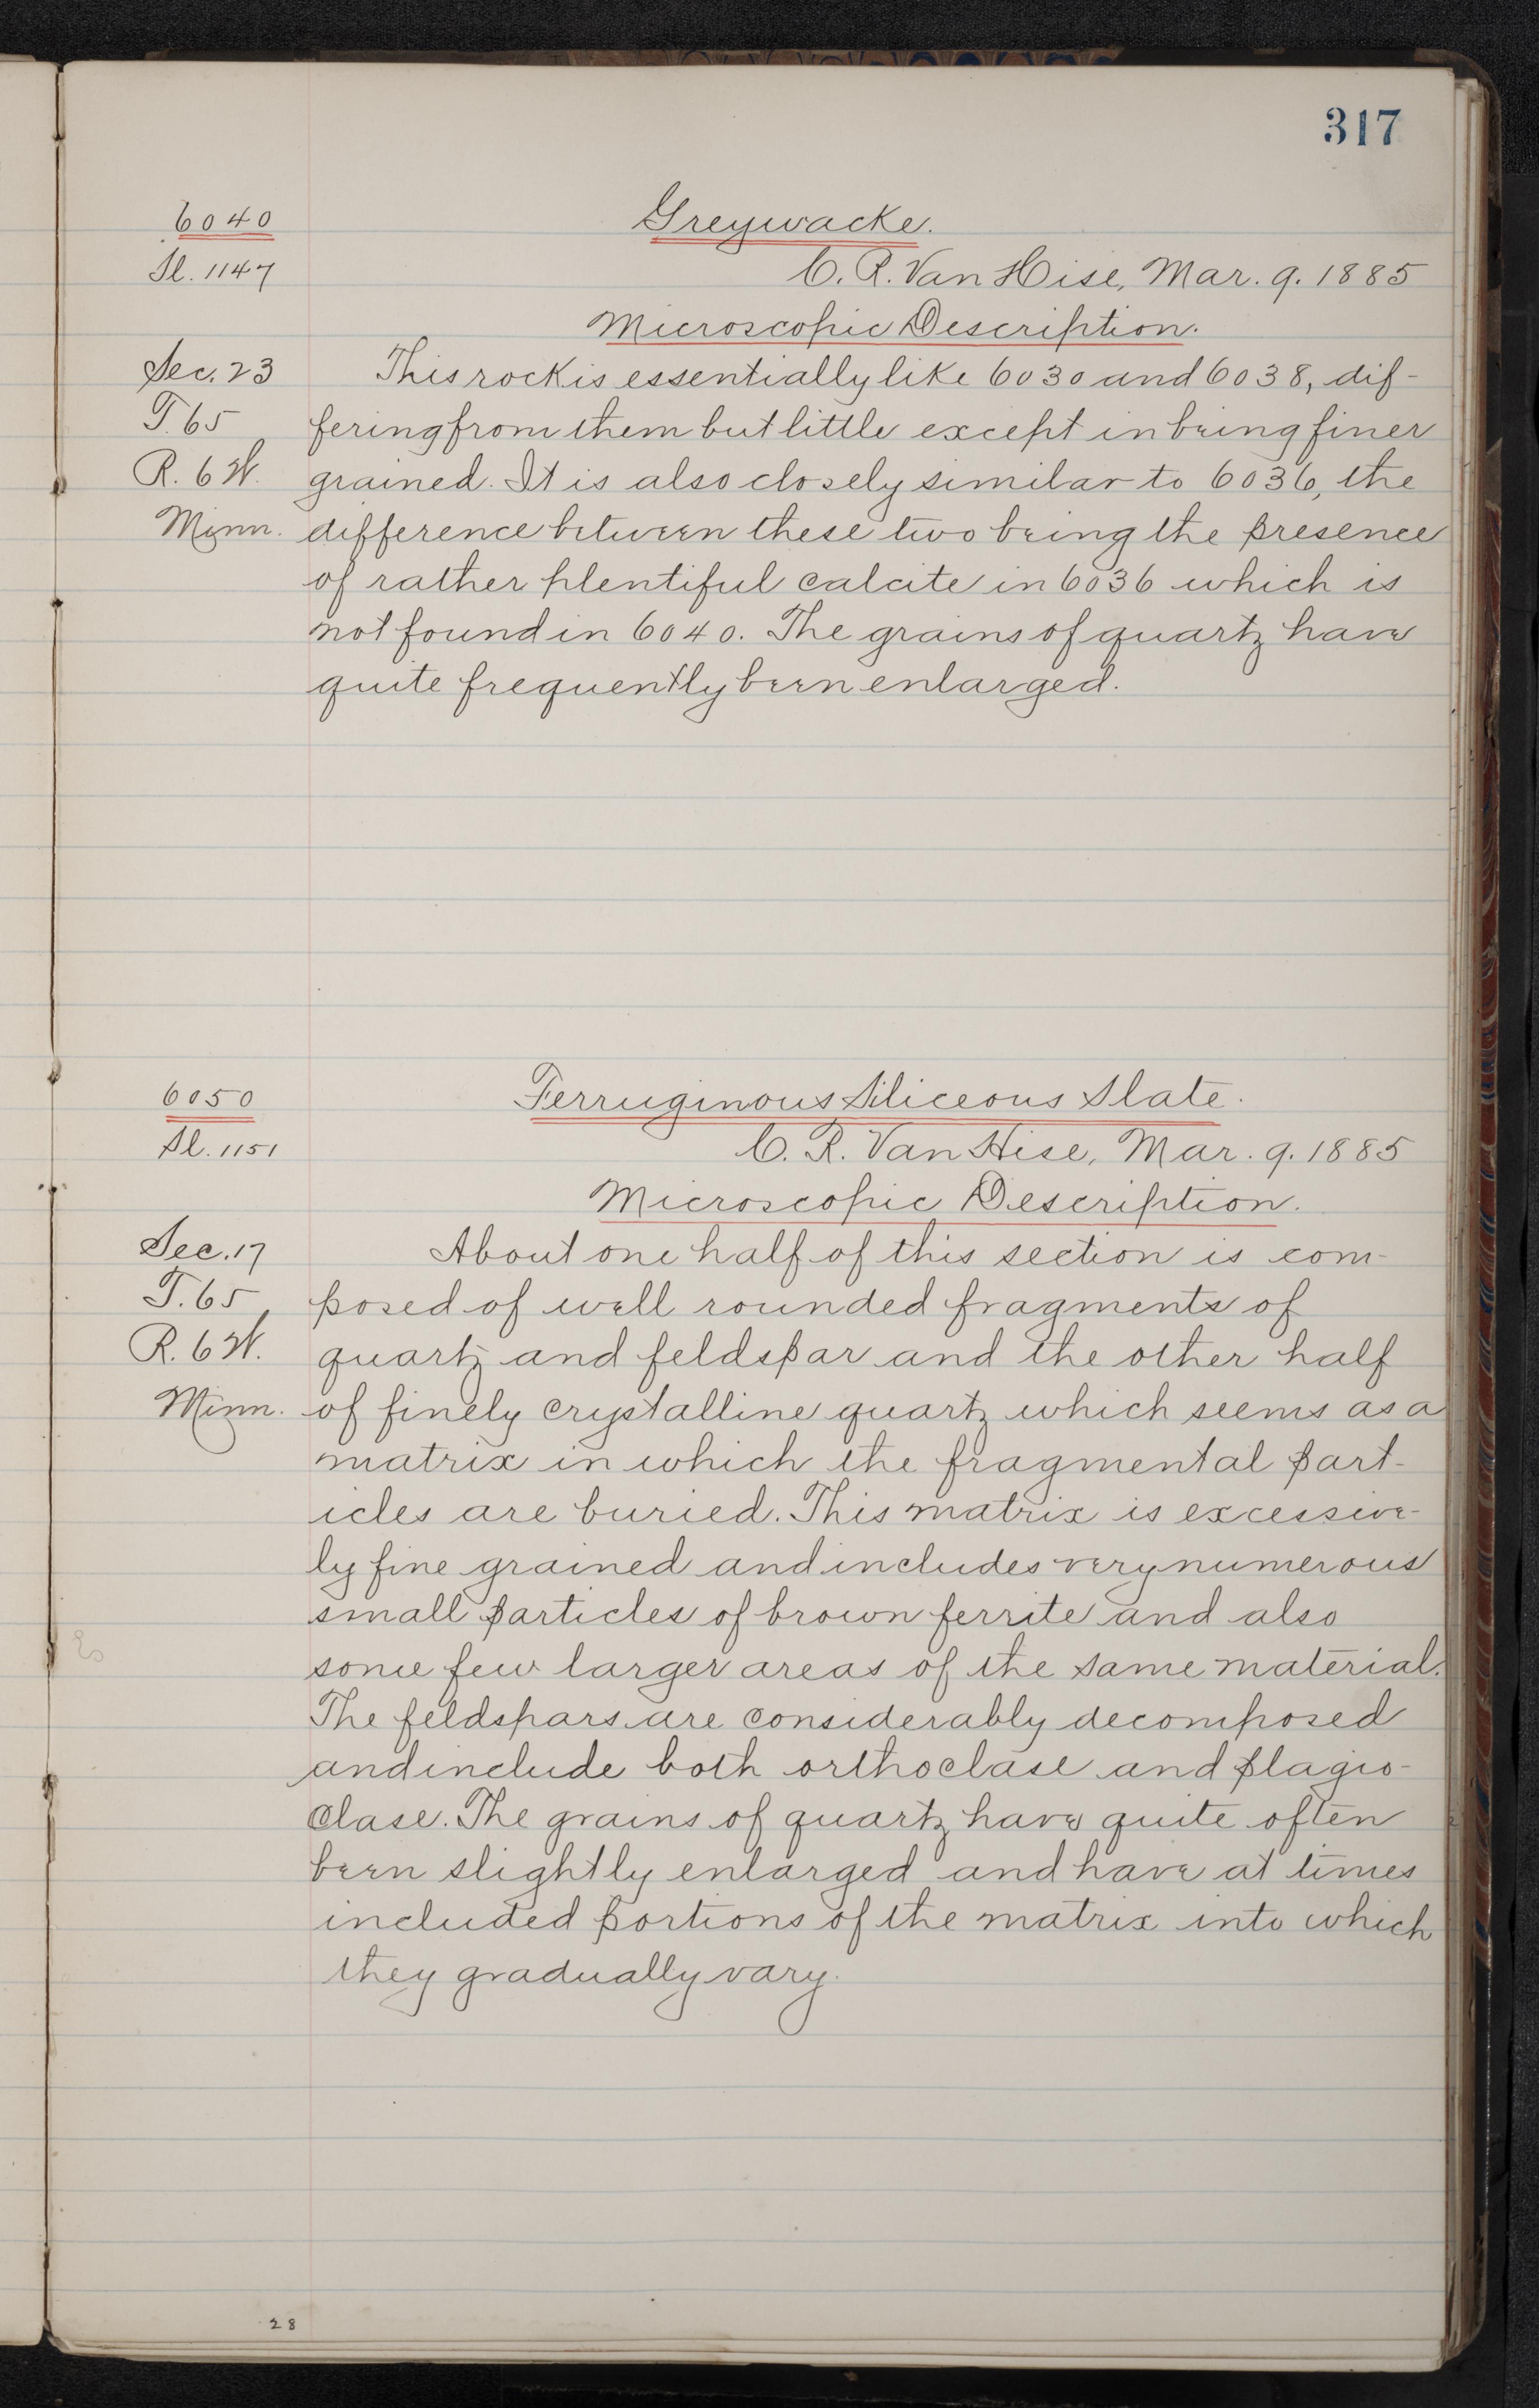 317
6040
Greywacke.
Sl. 1147
C. R. Van Hise, Mar. 9. 1885
Microscopic Description.
Sec. 23
This rock is essentially like 6030 and 6038, dif-
T. 65
fering from them but little except in being finer
R. 6 W.
grained. It is also closely similar to 6036, the
Minn.
difference between these two being the presence
of rather plentiful calcite in 6036 which is
not found in 6040. The grains of quartz have
quite frequently been enlarged.
6050
Ferruginous Siliceous Slate.
Sl. 1151
C. R. Van Hise, Mar. 9. 1885
Microscopic Description.
Sec. 17
About one half of this section is com-
T. 65
posed of well rounded fragments of
R. 6 W.
quartz and feldspar and the other half
Minn.
of finely crystalline quartz which seems as a
matrix in which the fragmental part-
icles are buried. This matrix is excessive-
ly fine grained and includes very numerous
small particles of brown ferrite and also
some few larger areas of the same material.
The feldspars are considerably decomposed
and include both orthoclase and plagio-
clase. The grains of quartz have quite often
been slightly enlarged and have at times
included portions of the matrix into which
they gradually vary.
28